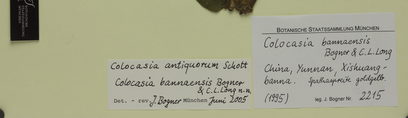 Colocasia antiquorum Schott
Colocasia bannaensis Bogner
& C.L.Long n.n.
Det. - rev. J. Bogner München Juni 2005
BOTANISCHE STAATSSAMMLUNG MÜNCHEN
Colocasia bannaensis
Bogner & C.L.Long
China, Yunnan, Xishuang-
banna. Spathaspreite goldgelb.
(1995) leg. J. Bogner Nr. 2215